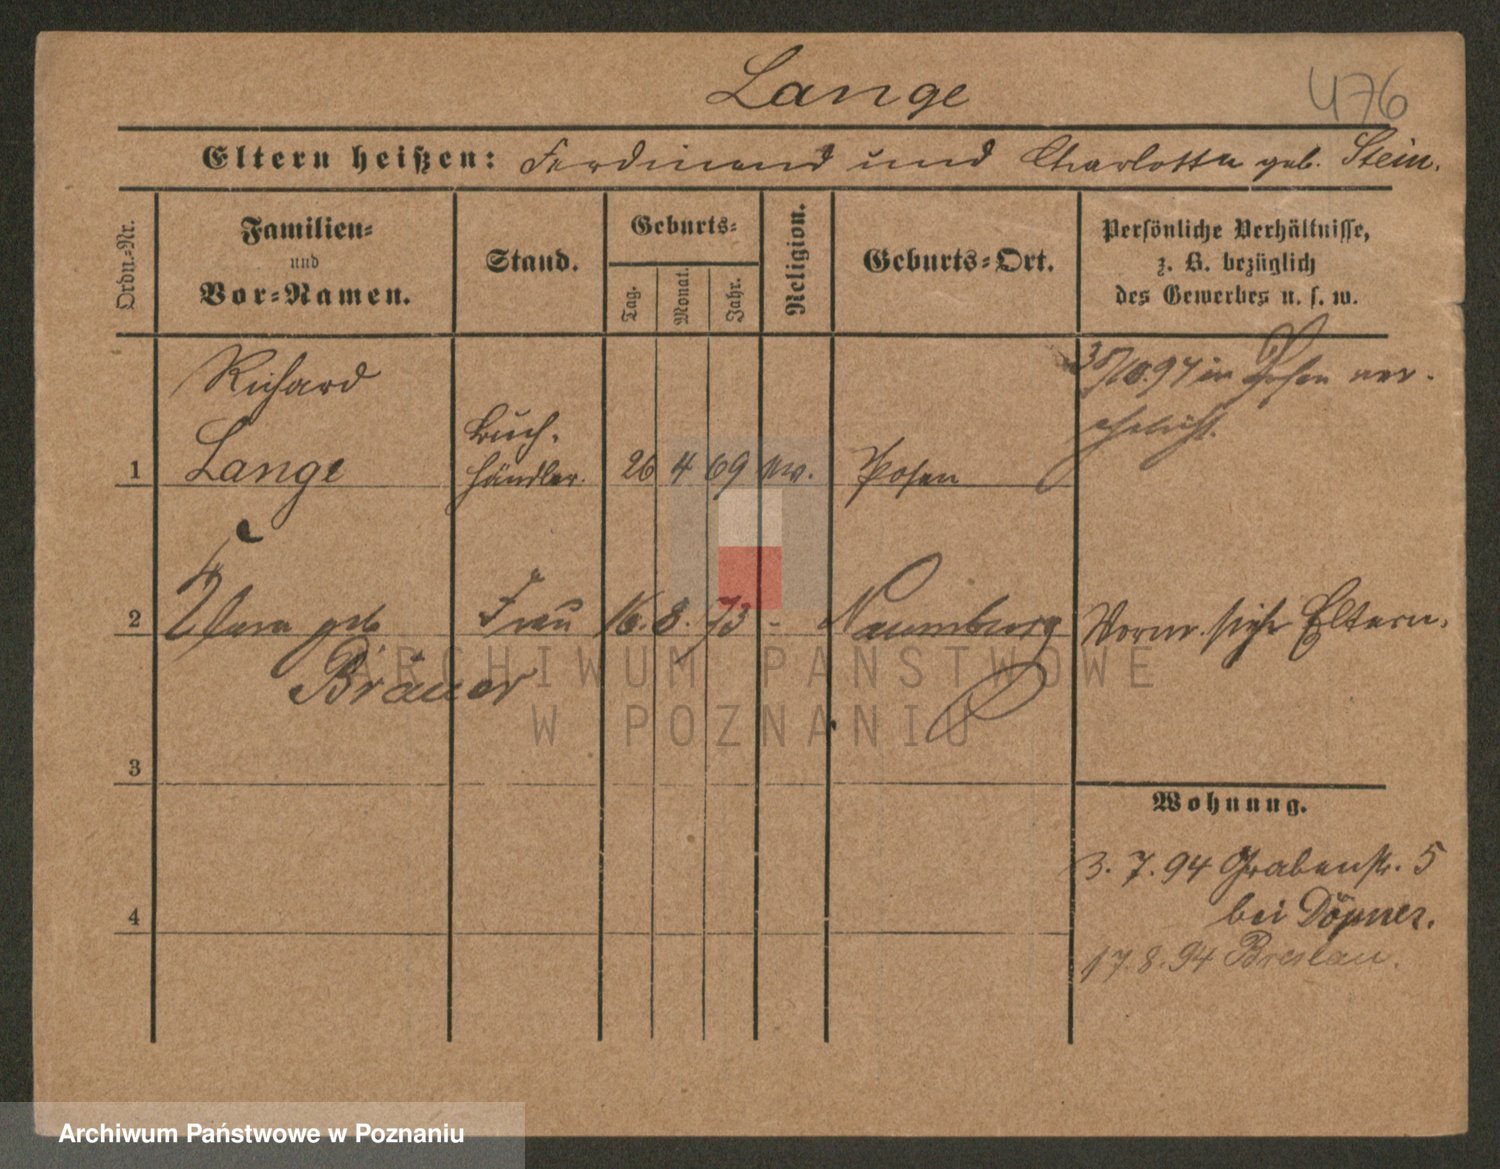 Lange
476
Eltern heißen: Ferdinand und Charlotte geb. Stein.
Ordn.-Nr.
Familien-
und
Vor-Namen.
Stand.
Geburts-
Tag.
Monat.
Jahr.
Religion.
Geburts-Ort.
Persönliche Verhältnisse,
z. B. bezüglich
des Gewerbes u. s. w.
Richard
Lange
1
Buch-
händler.
26 4 69 ev. Posen
10.97 in Posen ver-
ehelicht.
2 Clara geb
Bräuer
Frau 16. 8. 73 - Naumburg
Vorm. siehe Eltern.
3
4
Wohnung.
3. 7. 94 Grabenstr. 5
bei Döpner.
17. 8. 94 Breslau.
ARCHIWUM PAŃSTWOWE
W POZNANIU
Archiwum Państwowe w Poznaniu